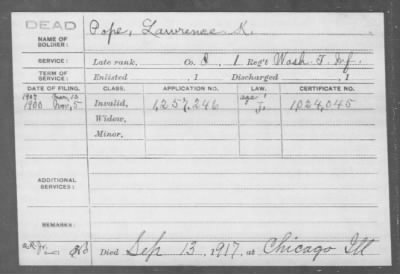 DEAD
NAME OF SOLDIER: Pope, Lawrence K.
SERVICE: Late rank, Co. I 1 Reg't Wash. T. Inf.
TERM OF SERVICE: Enlisted , 1 Discharged , 1
DATE OF FILING. CLASS. APPLICATION NO. LAW. CERTIFICATE NO.
1907 age
1900 Nov, 5 Invalid, 1,257,246 J. 1,024,045
Widow,
Minor,
ADDITIONAL SERVICES:
REMARKS:
Died Sep 13, 1917, at Chicago Ill